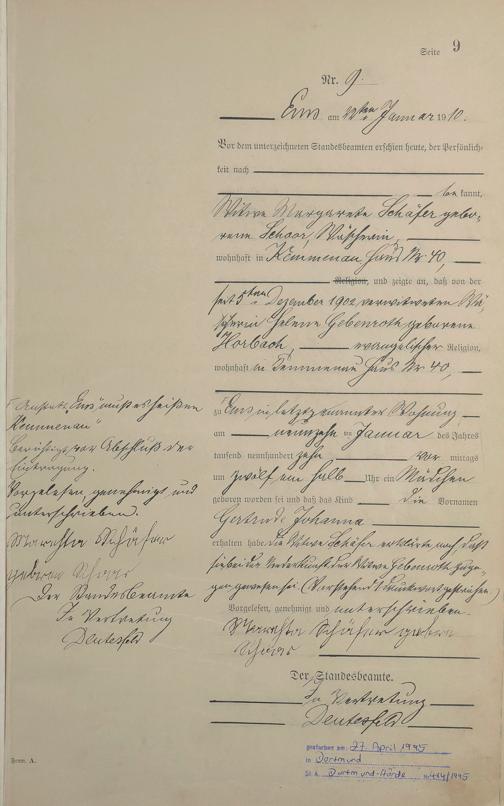 Seite 9
Nr. 9.
Ems am ten Januar 1910.
Vor dem unterzeichneten Standesbeamten erschien heute, der Persönlich-
keit nach
bekannt,
Witwe Margarete Schäfer gebo-
rene Schaar, Wäscherin,
wohnhaft in Kemmenau Haus Nr 40,
Religion, und zeigte an, daß von der
seit 5ten Dezember 1902 verwitweten Wä-
scherin Helene Gebenroth geborene
Horbach, evangelischer Religion,
wohnhaft in Kemmenau Haus Nr 40,
zu Ems in letztgenannter Wohnung
am neunzehn ten Januar des Jahres
tausend neunhundert zehn vor mittags
um zwölf ein halb Uhr ein Mädchen
geboren worden sei und daß das Kind die Vornamen
Gertrud Johanna
erhalten habe. Die Witwe Schäfer erklärte noch, daß
sie bei der Niederkunft der Witwe Gebenroth zuge-
gen gewesen sei. (Vorstehend Druckwort gestrichen.)
Vorgelesen, genehmigt und unterschrieben.
Schäfer geborene
Schaar
Der Standesbeamte.
In Vertretung
Anstatt "Ems" muß es heißen
"Kemmenau"
Berichtigt vor Abschluß der
Eintragung.
Vorgelesen, genehmigt und
unterschrieben.
Schäfer
geborene Schaar
Der Standesbeamte
In Vertretung
Form. A.
gestorben am: 27. April 1995
in Dortmund
St. A. Dortmund-Hörde Nr. 414/1995